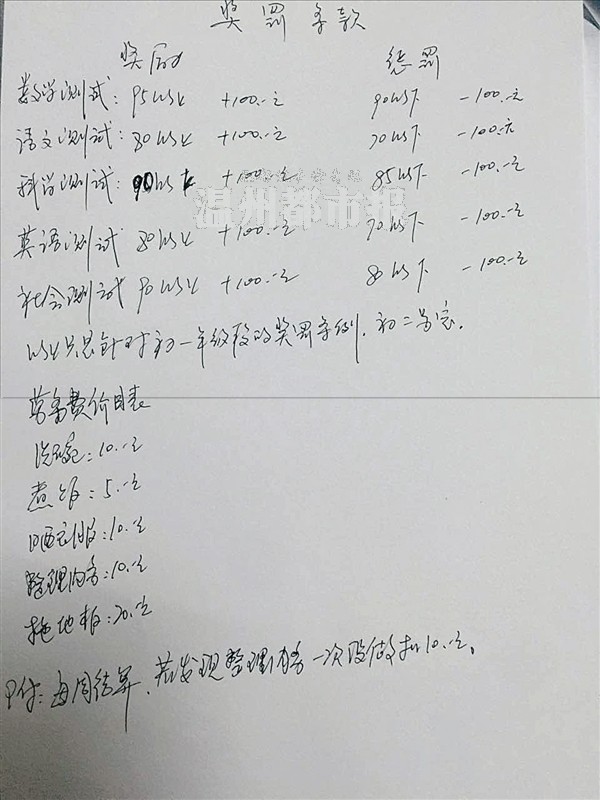 奖罚条款
奖励 惩罚
数学测试: 95以上 +100.-元 90以下 -100.-元
语文测试: 80以上 +100.-元 70以下 -100.-元
科学测试: 90以上 +100.-元 85以下 -100.-元
温州都市报
英语测试 80以上 +100.-元 70以下 -100.-元
社会测试 90以上 +100.-元 80以下 -100.-元
以上只是针对初一年级段的奖罚条例,初二另定.
劳务费价目表
洗碗: 10.-元
煮饭: 5.-元
晒衣服: 10.-元
整理内务: 10.-元
拖地板: 20.-元
P付: 每周结算,若发现整理内务一次没做扣10.-元。